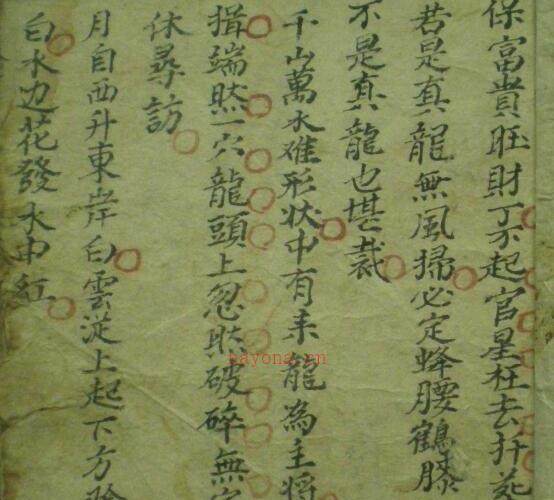 保富貴旺財丁不起官星枉去扦茔
若是真龍無風掃必定蜂腰鶴膝
不是真龍也堪裁
千山萬水难形状中有来龍為主将
揖端然一穴龍頭上忽然破碎無
休尋訪
月自西升東岸白雲従上起下方
白水边花發水中紅
nayona.cn